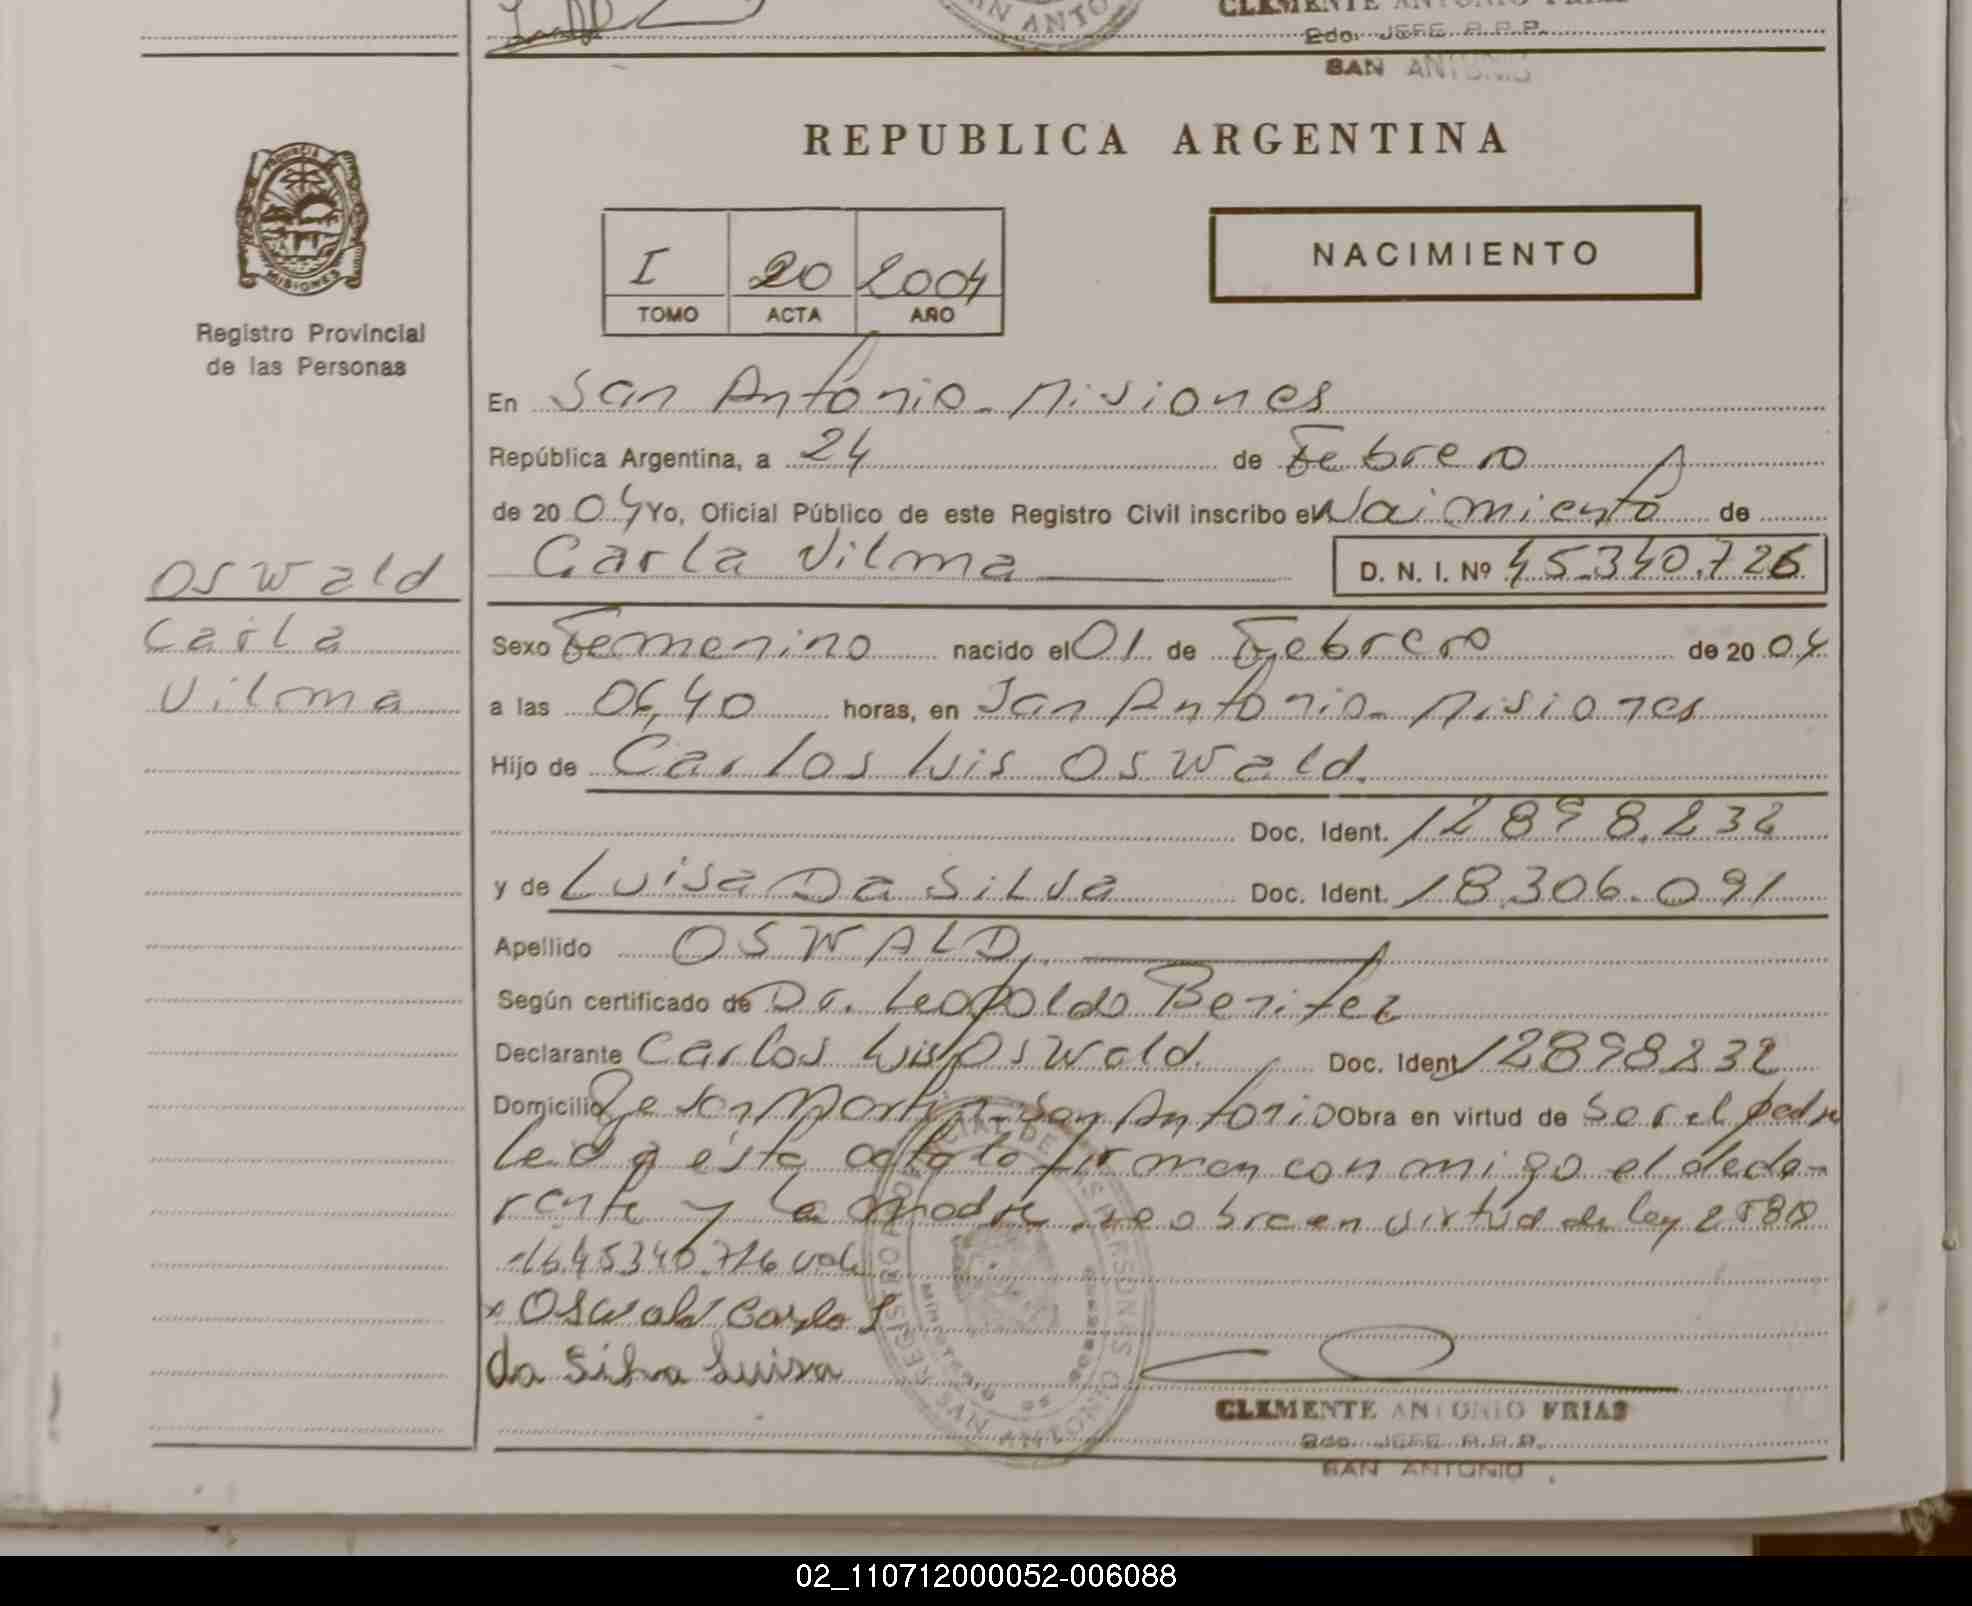 CLEMENTE ANTONIO FRIAS
2do. JEFE R.P.P.
SAN ANTONIO
REPUBLICA ARGENTINA
PROVINCIA
MISIONES
Registro Provincial
de las Personas
I 20 2004
TOMO ACTA AÑO
NACIMIENTO
En San Antonio - Misiones
República Argentina, a 24 de Febrero
de 20 04 Yo, Oficial Público de este Registro Civil inscribo el Naimiento de
Carla Vilma D. N. I. Nº 45.340.726
Oswald
Carla
Vilma
Sexo Femenino nacido el 01 de Febrero de 20 04
a las 06,40 horas, en San Antonio - Misiones
Hijo de Carlos Luis Oswald.
Doc. Ident. 12898.232
y de Luisa Da Silva Doc. Ident. 18.306.091
Apellido OSWALD
Según certificado de Dr. Leopoldo Benitez
Declarante Carlos Luis Oswald. Doc. Ident 12898232
Domicilio Gr. San Martin - San Antonio Obra en virtud de Ser el padre
leida esta acta la firman conmigo el decla-
rante y la madre, se obra en virtud de ley
45340.726 vale
x Oswald Carlo L
da Silva Luisa
REGISTRO PROVINCIAL DE LAS PERSONAS
MINISTERIO DE GOBIERNO
SAN ANTONIO
CLEMENTE ANTONIO FRIAS
2do. JEFE R.P.P.
SAN ANTONIO
02_110712000052-006088